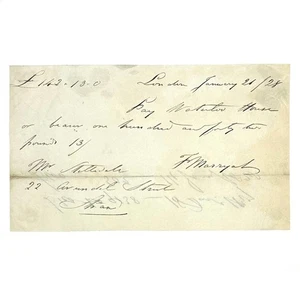 £ 142-13-0 London January 21/28
Pay Waterloo House
or bearer one hundred and forty two
pounds 13/
Mr. Stilliele F Marryat
22 Arundel Street
Stran